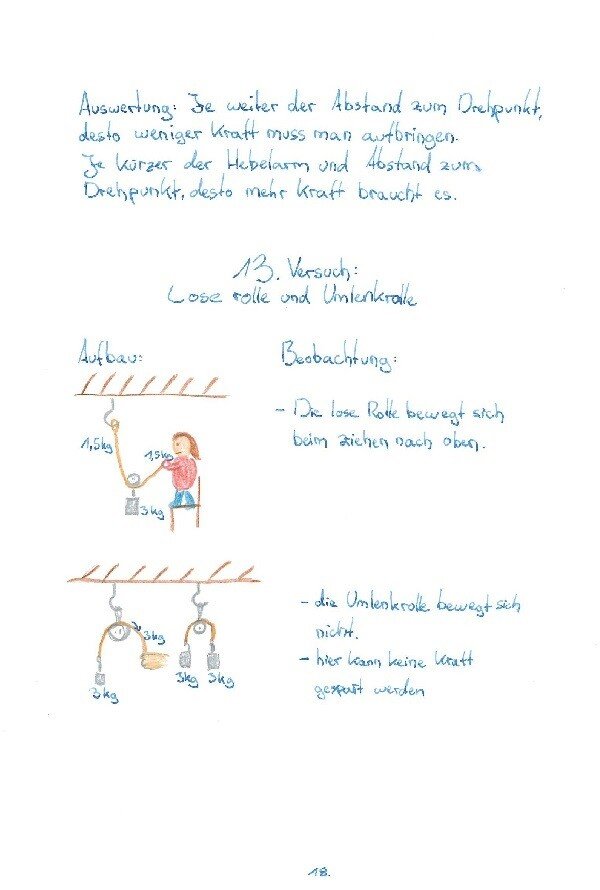 Auswertung: Je weiter der Abstand zum Drehpunkt,
desto weniger Kraft muss man aufbringen.
Je kürzer der Hebelarm und Abstand zum
Drehpunkt, desto mehr Kraft braucht es.
13. Versuch:
Lose rolle und Umlenkrolle
Aufbau:
Beobachtung:
1,5kg
1,5kg
3kg
- Die lose Rolle bewegt sich
beim ziehen nach oben.
3kg
3kg
3kg
3kg
- die Umlenkrolle bewegt sich
nicht.
- hier kann keine Kraft
gespart werden
18.